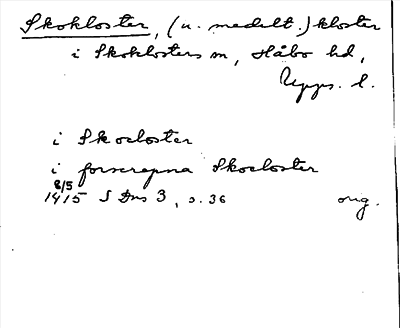 Skokloster, (u. medelt.) kloster
i Skoklosters sn, Håbo hd,
Upps. l.
i Skocloster
i forscrepna Skocloster
8/5
1415 S Dns 3, s. 36 orig.